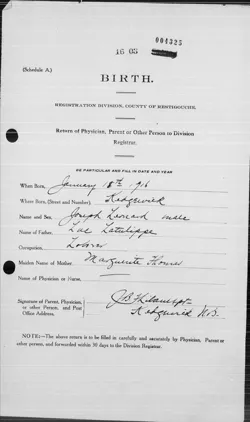 004325
16 05
(Schedule A.)
BIRTH.
REGISTRATION DIVISION, COUNTY OF RESTIGOUCHE.
Return of Physician, Parent or Other Person to Division
Registrar.
BE PARTICULAR AND FILL IN DATE AND YEAR
When Born, January 18th 1916
Where Born, (Street and Number) Kedgwick
Name and Sex, Joseph Leonard male
Name of Father, Luc Latulippe
Occupation, Laborer
Maiden Name of Mother, Marguerite
Name of Physician or Nurse,
Signature of Parent, Physician,
or other Person, and Post
Office Address, J B
Kedgwick N.B.
NOTE:—The above return is to be filled in carefully and accurately by Physician, Parent or
other person, and forwarded within 30 days to the Division Registrar.